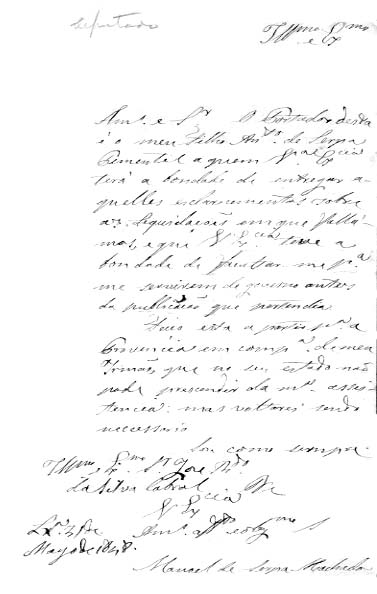 Deputado
Illmo. Exmo.
e
Amº. e Sr. O Portador desta
é o meu Filho Antº. de Serpa
Pimentel a quem V. Excia
terá a bondade de entregar a-
quelles esclarecimentos sobre
as liquidacoẽs em que falla-
mos, e que V. Excia teve a
bondade de facultar-me pª.
me servirem de governo antes
da publicação que pertendia
esta a partir pª. a
Provincia em compª. de meu
Irmaõ, que no seu estado naõ
pode prescindir da mª. assis-
tencia: mas voltarei sendo
necessario
Sou como sempre
Illmo. Exmo. Sr. Joze
da Silva Cabral
De V. Excia
Amº.
Lxª. 4 de
Mayo de 1848.
Manoel de Serpa Machado